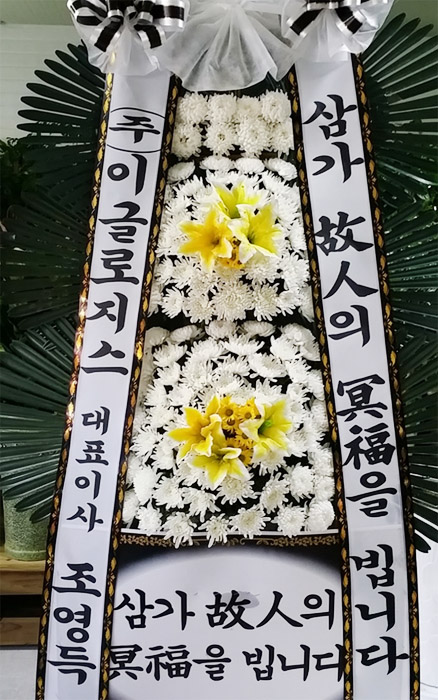 삼가 故人의 冥福을 빕니다
㈜이글로지스 대표이사 조영득
삼가 故人의
冥福을 빕니다